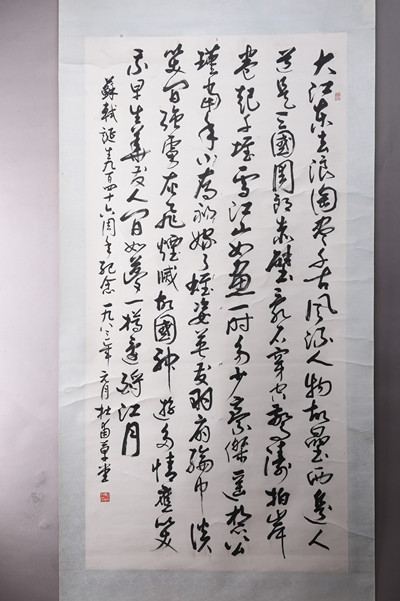 大江东去浪淘尽千古风流人物故垒西边人
道是三國周郎赤壁乱石穿空驚涛拍岸
卷起千堆雪江山如画一时多少豪傑遥想公
瑾当年小喬初嫁了雄姿英发羽扇綸巾谈
笑间强虏灰飞煙滅故國神遊多情應笑
我早生華发人间如夢一樽還酹江月
蘇軾誕生九百四十六周年纪念一九八三年元月杜甫草堂